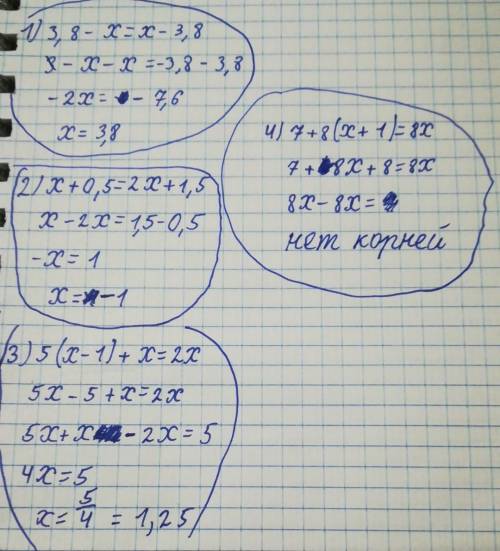 1) 3,8 - x = x - 3,8
- x - x = -3,8 - 3,8
-2x = - 7,6
x = 3,8
2) x + 0,5 = 2x + 1,5
x - 2x = 1,5 - 0,5
-x = 1
x = -1
3) 5(x-1) + x = 2x
5x - 5 + x = 2x
5x + x - 2x = 5
4x = 5
x = 5/4 = 1,25
4) 7 + 8(x+1) = 8x
7 + 8x + 8 = 8x
8x - 8x =
нет корней